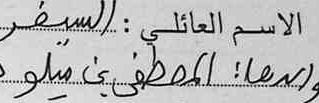 الاسم العائلي : السيفر
والدها: المصطفى بن ميلود